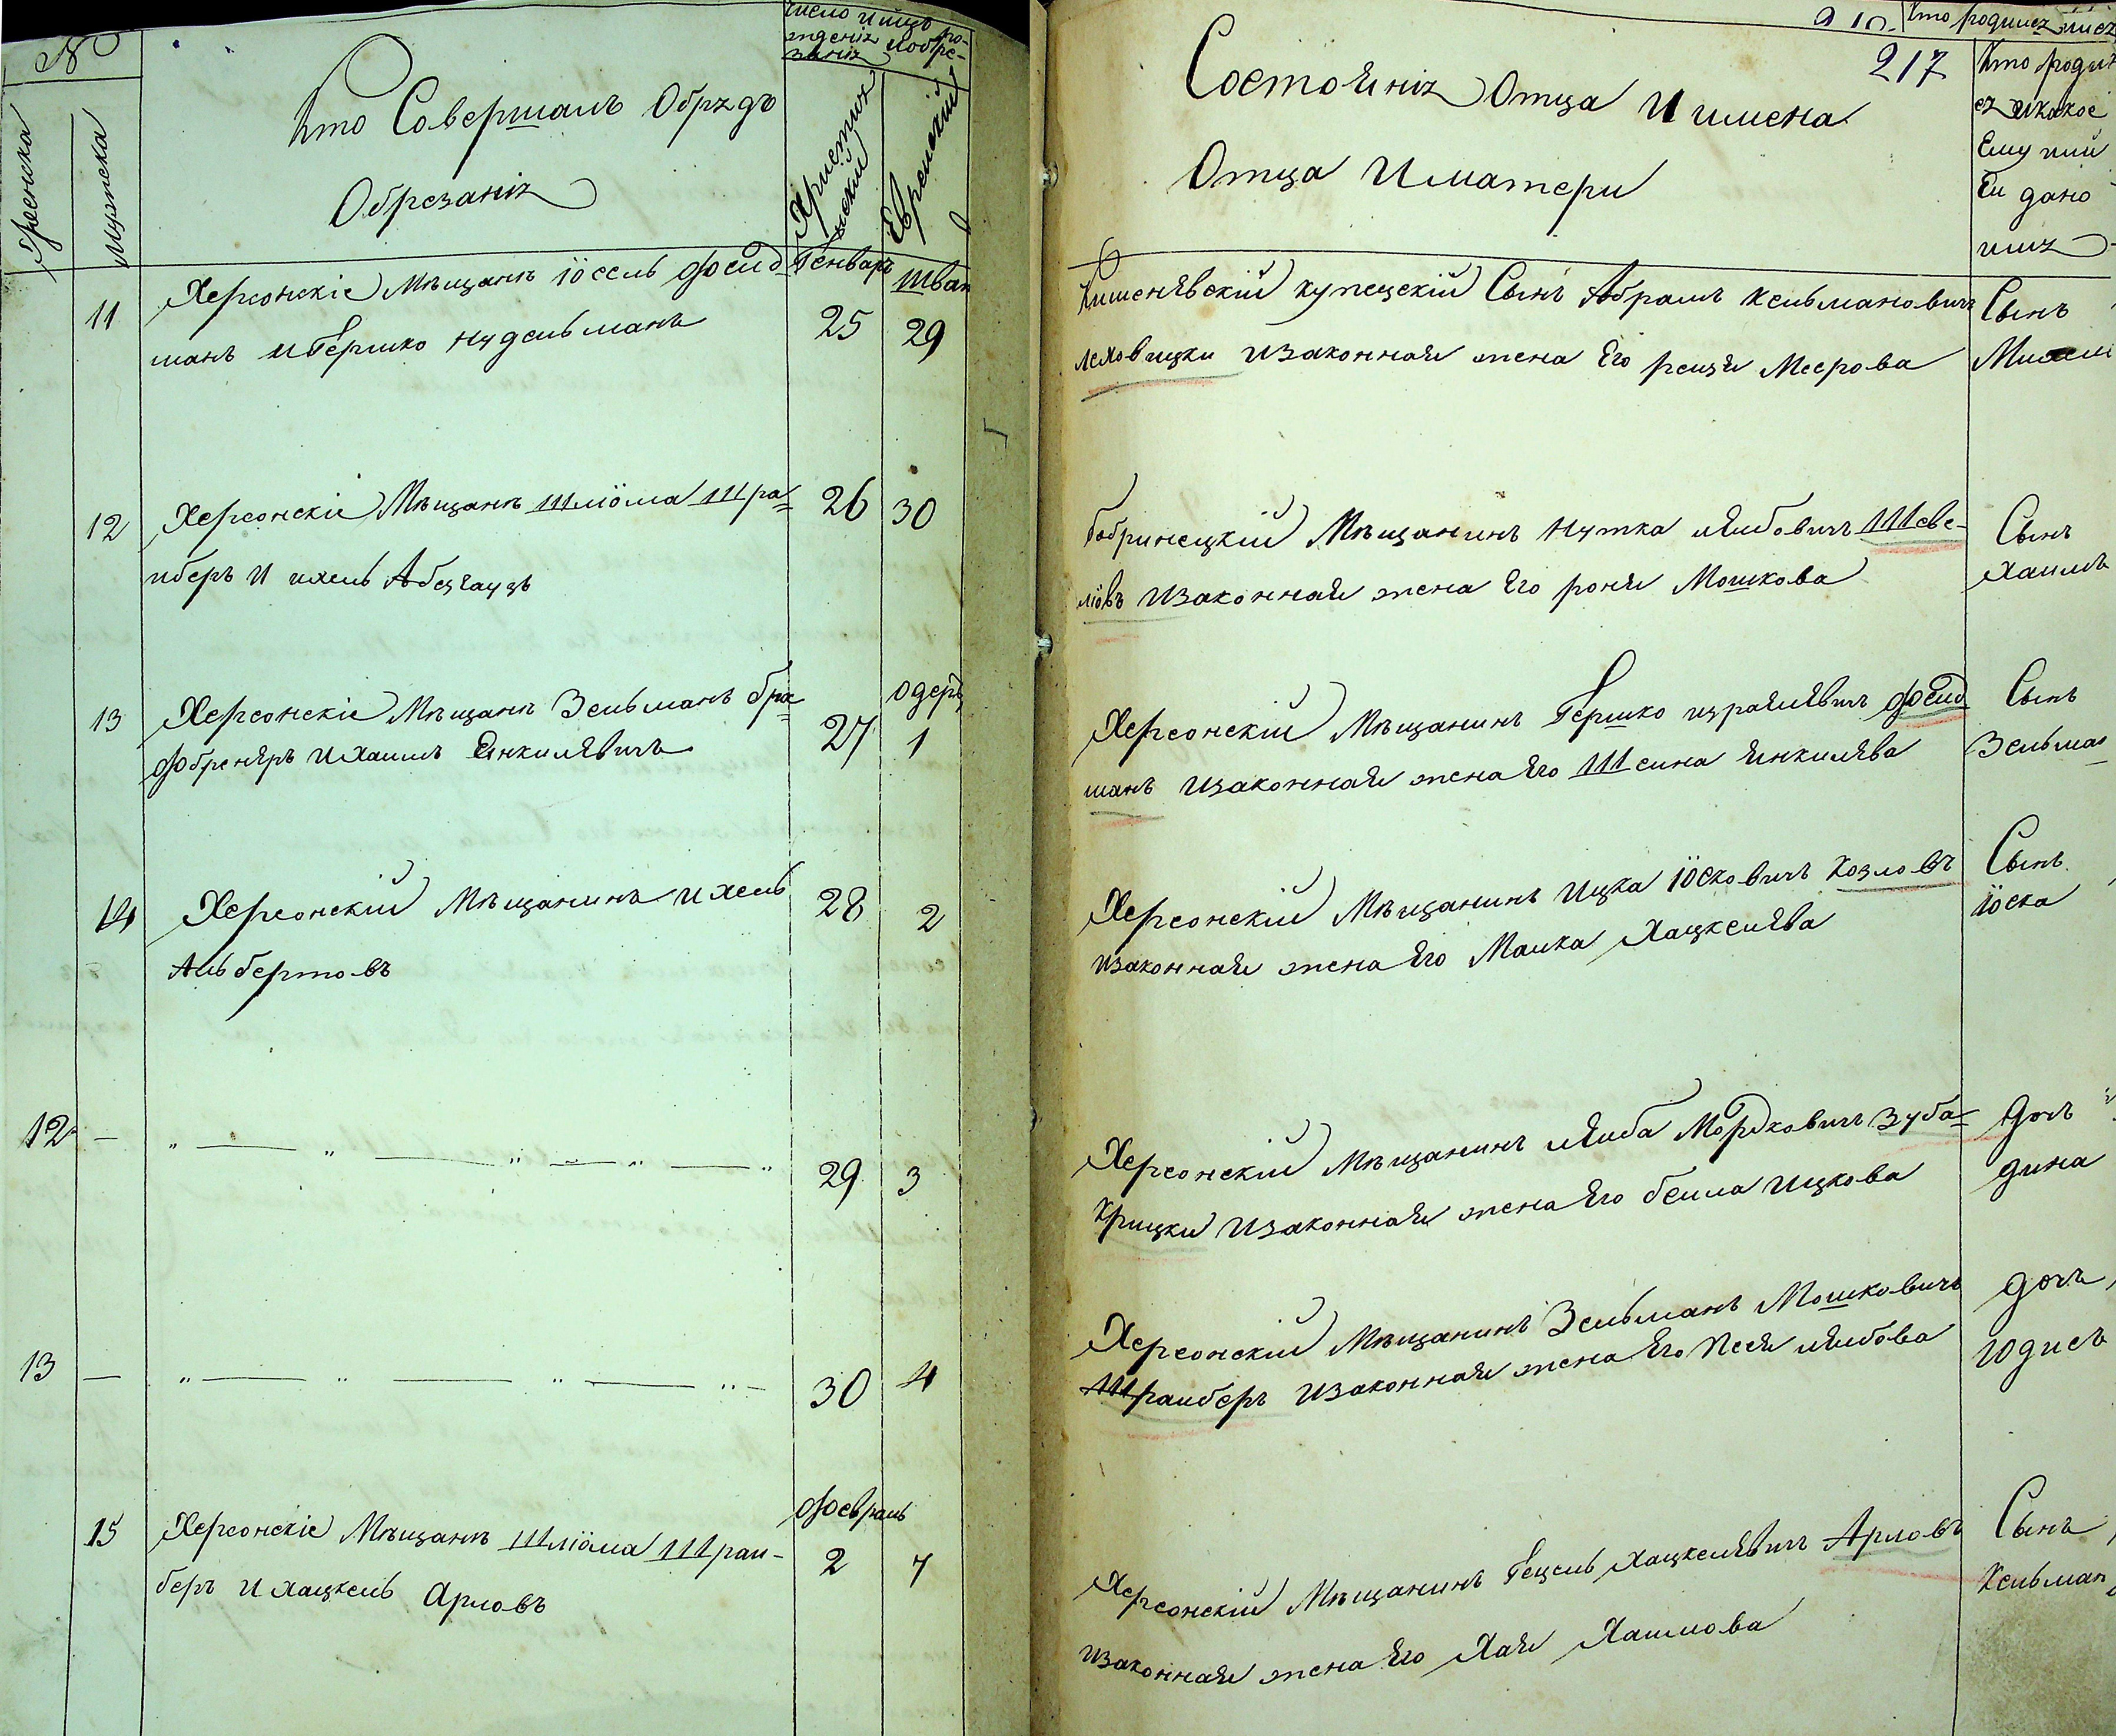 №
Женска
Мужеска
Кто Совершалъ Обрядъ
Обрезанія
Христіянскій
Еврейскій
11
Херсонскіе Мѣщанѣ Іосель Фоейд
манъ и Гершко Нудельманъ
Генварь
25
Шват
29
12
Херсонскіе Мѣщанѣ Шліома Шра=
иберъ и Ихель Абезгаузъ
26
30
13
Херсонскіе Мѣщанѣ Зельманъ
и Хаимъ Енкилявичъ
27
Одеръ
1
14
Херсонскій Мѣщанинъ Ихель
Альбертовъ
28
2
12
29
3
13
30
4
15
Херсонскіе Мѣщанѣ Шліома Шраи-
беръ и Хацкель Арловъ
Февраль
2
7
217
Состоянія Отца и имена
Отца и матери
Кто родил
ся и какое
Ему или
Ей дано
имя
Кишенявскій купецскій Сынъ Абрамъ Кельмановичъ
Леховицки и законная жена Его Рейзя Меерова
Сынъ
Бобринецкій Мѣщанинъ Нутка Лейбовичъ Шеве-
лiовъ и законная жена Его Роня Мошкова
Сынъ
Хаимъ
Херсонскій Мѣщанинъ Гершко Израилявичъ Фоейд
манъ и законная жена Его Шейна Янкилява
Сынъ
Зельман
Херсонскій Мѣщанинъ Ицка Іосковичъ Козловъ
и законная жена Его Малка Хацкелява
Сынъ
Іоска
Херсонскій Мѣщанинъ Лейба Мордковичъ Зуба=
крицки и законная жена Его Бейла Ицкова
Дочь
Дина
Херсонскій Мѣщанинъ Зельманъ Мошковичъ
Шраиберъ и законная жена Его Песя Лейбова
Дочь
Юдисъ
Херсонскій Мѣщанинъ Гецель Хацкелявичъ Арловъ
и законная жена Его Хая Хаимова
Сынъ
Кельман